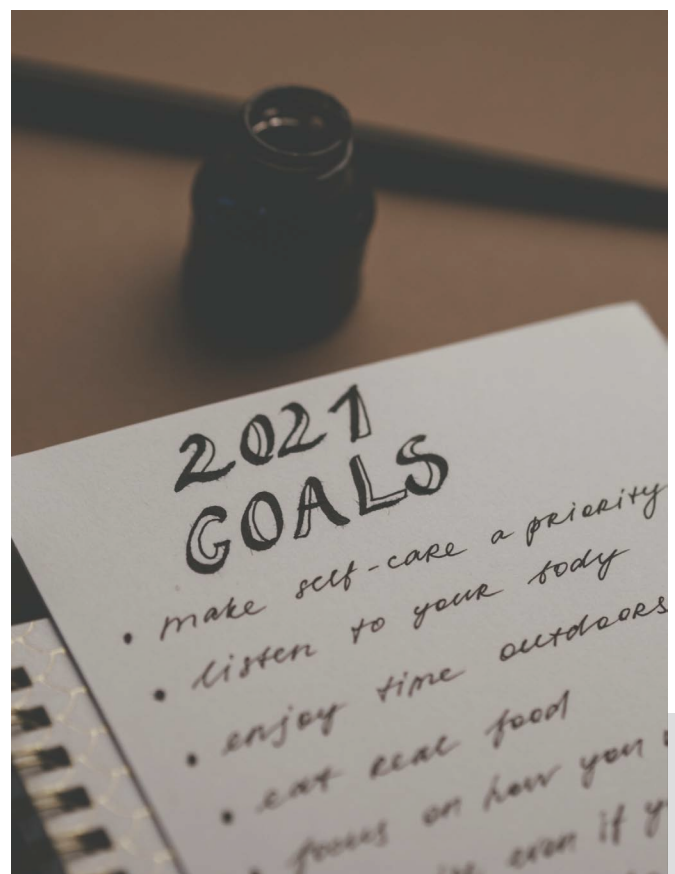 2021
GOALS
• make self-care a priority
• listen to your body
• enjoy time outdoors
• eat real food
• focus on how you
even if